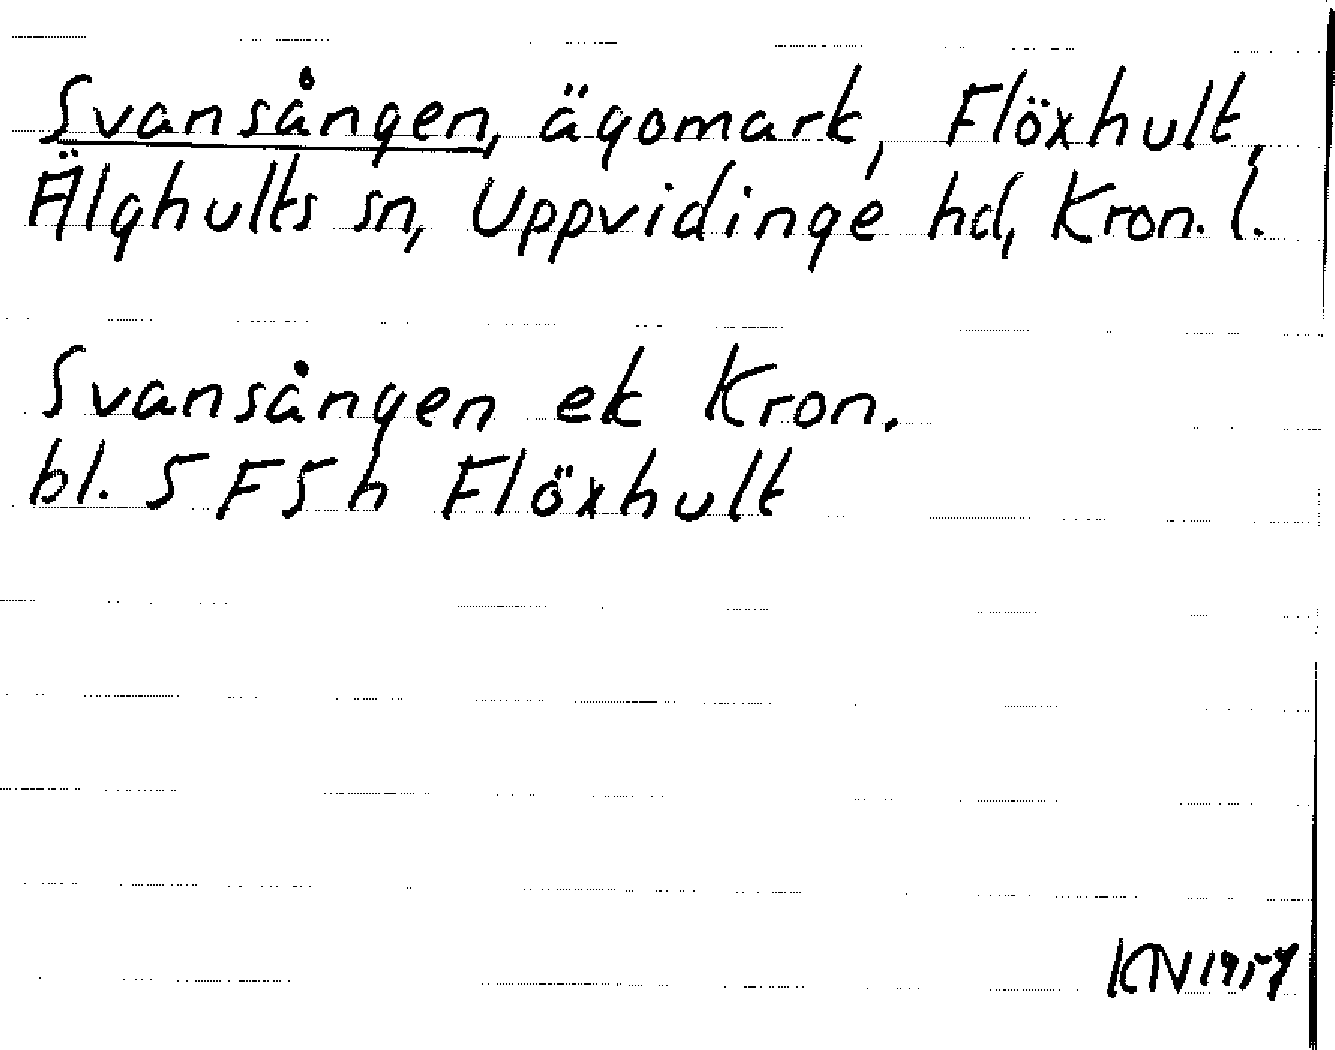 Svansången, ägomark, Flöxhult,
Älghults sn, Uppvidinge hd, Kron. l.
Svansången ek Kron.
bl. 5 F 5 h Flöxhult
KN 1957